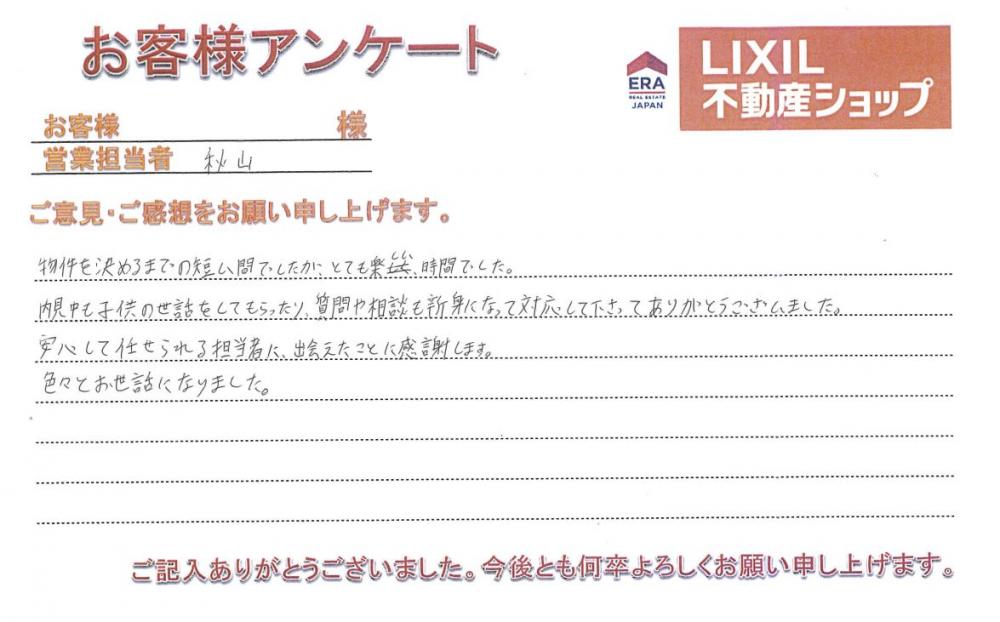 お客様アンケート
ERA
REAL ESTATE
JAPAN
LIXIL
不動産ショップ
お客様 様
営業担当者 秋山
ご意見・ご感想をお願い申し上げます。
物件を決めるまでの短い間でしたが、とても楽しい時間でした。
内見中も子供の世話をしてもらったり、質問や相談も新身になって対応して下さってありがとうございました。
安心して任せられる担当者に、出会えたことに感謝します。
色々とお世話になりました。
ご記入ありがとうございました。今後とも何卒よろしくお願い申し上げます。